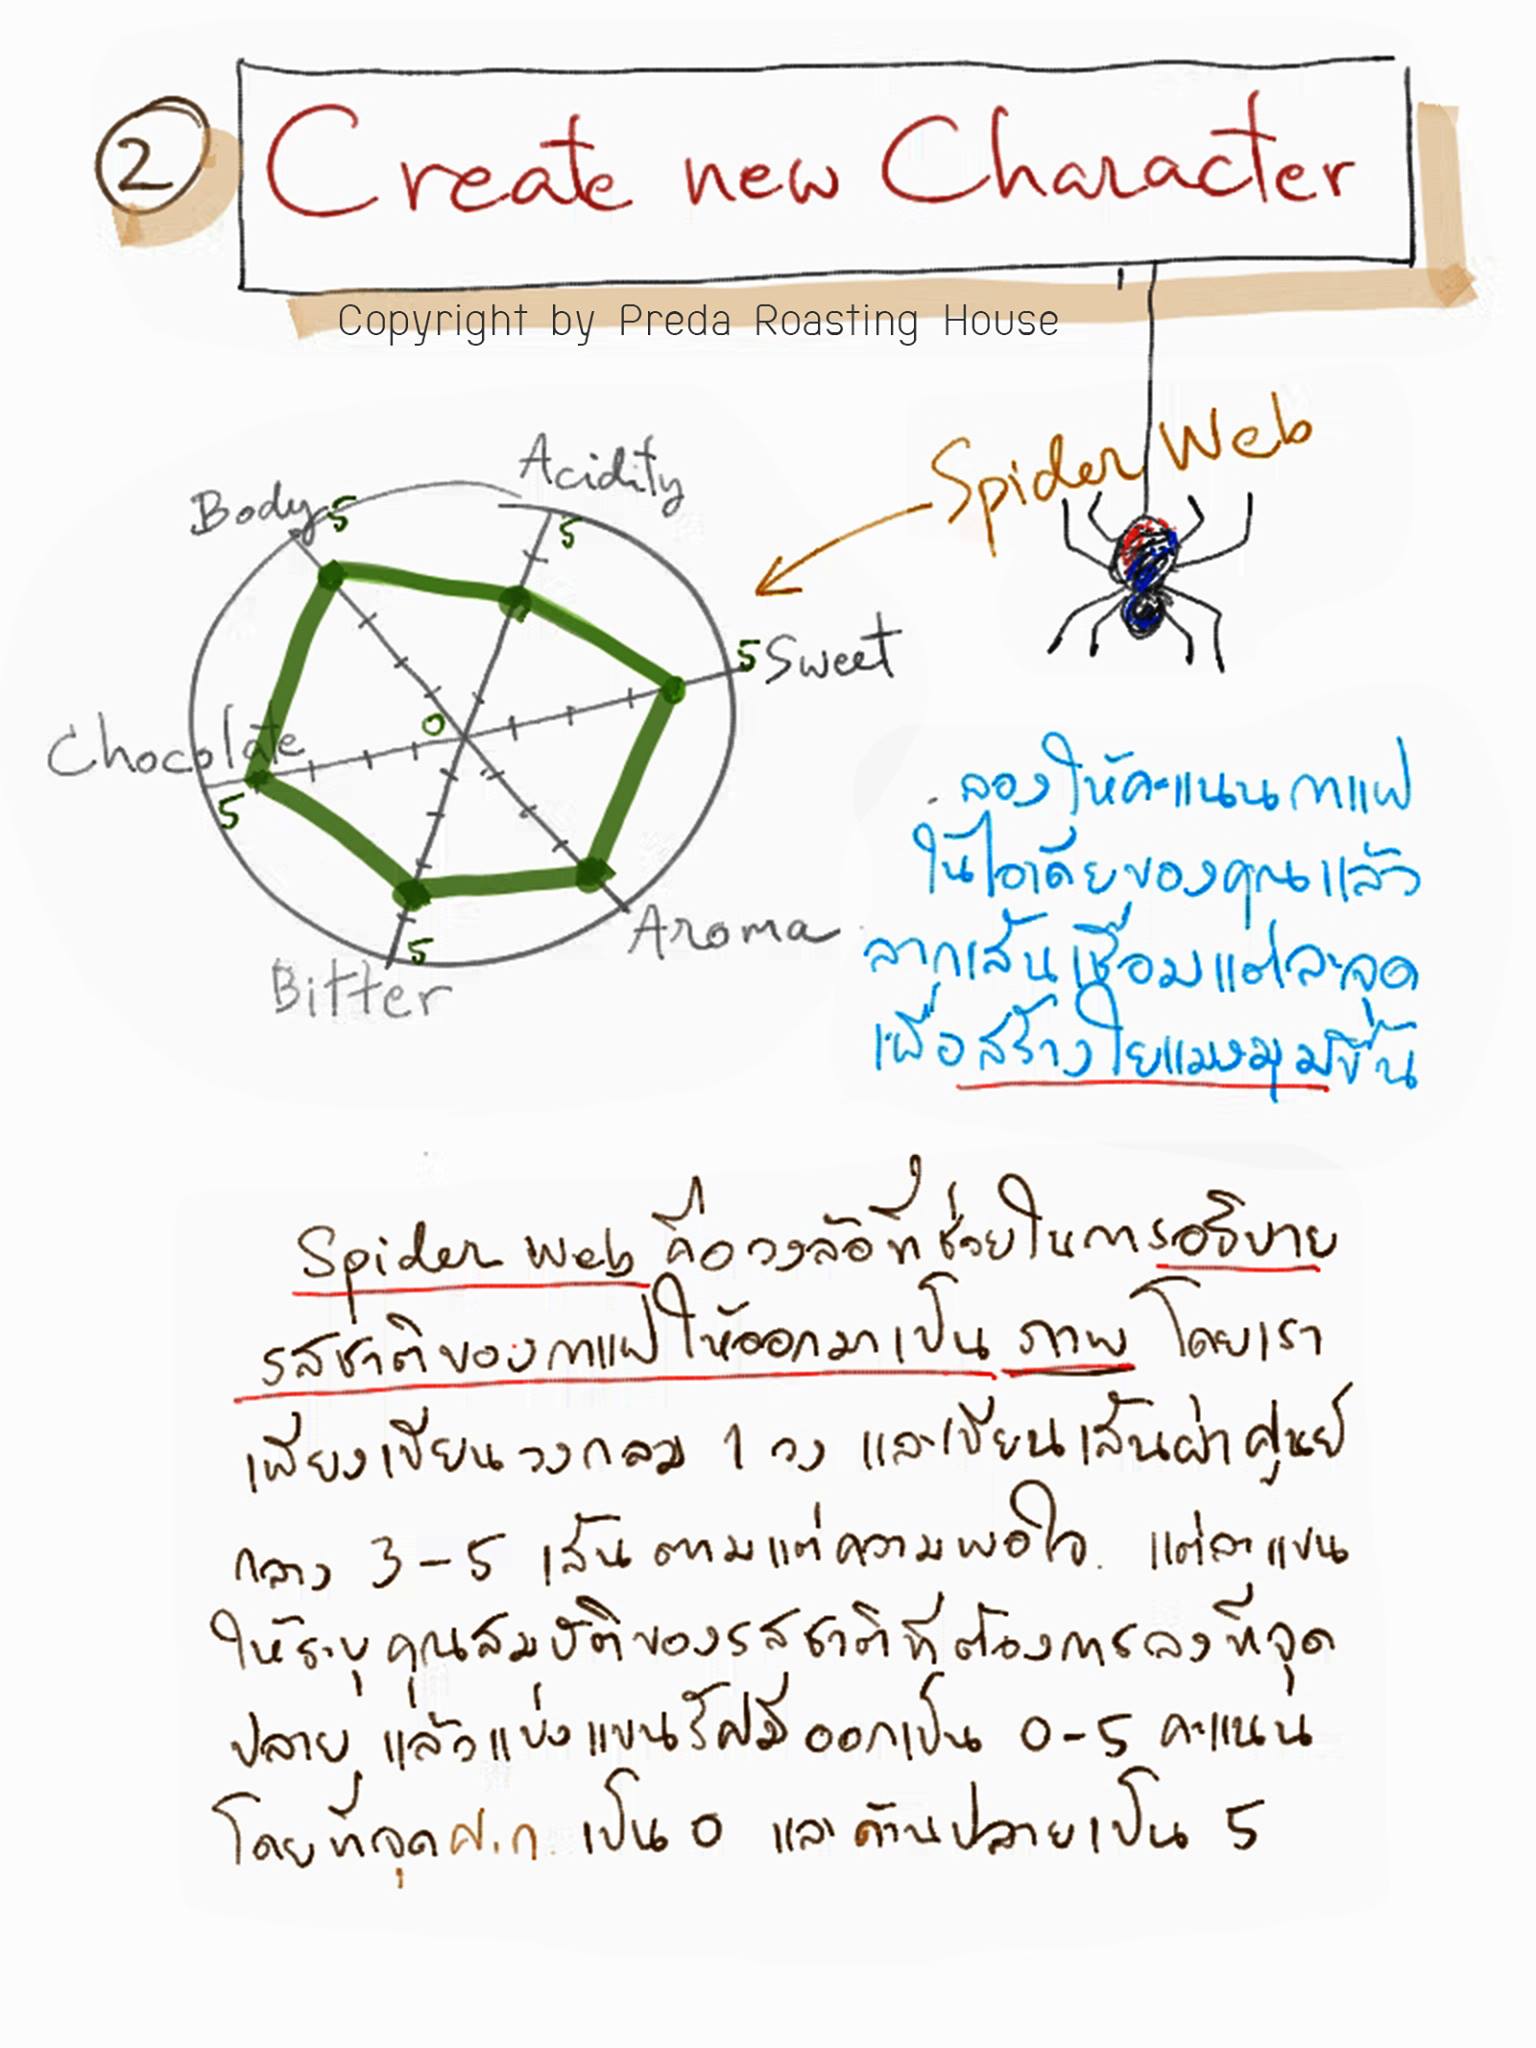 2
Create new Character
Copyright by Preda Roasting House
Spider Web
Acidity
5
Body
5
Sweet
5
0
Chocolate
5
Aroma
Bitter
5
ลองให้คะแนนกาแฟ
ในไอเดียของคุณแล้ว
ลากเส้นเชื่อมแต่ละจุด
เพื่อสร้างใยแมงมุมขึ้น
Spider Web คือวงล้อที่ช่วยในการอธิบาย
รสชาติของกาแฟให้ออกมาเป็น ภาพ โดยเรา
เพียงเขียนวงกลม 1 วง และเขียนเส้นผ่าศูนย์
กลาง 3-5 เส้นตามแต่ความพอใจ. แต่ละแขน
ให้ระบุคุณสมบัติของรสชาติที่ต้องการลงที่จุด
ปลาย แล้วแบ่งแขนรัศมีออกเป็น 0-5 คะแนน
โดยที่จุดศ.ก. เป็น 0 และด้านปลายเป็น 5